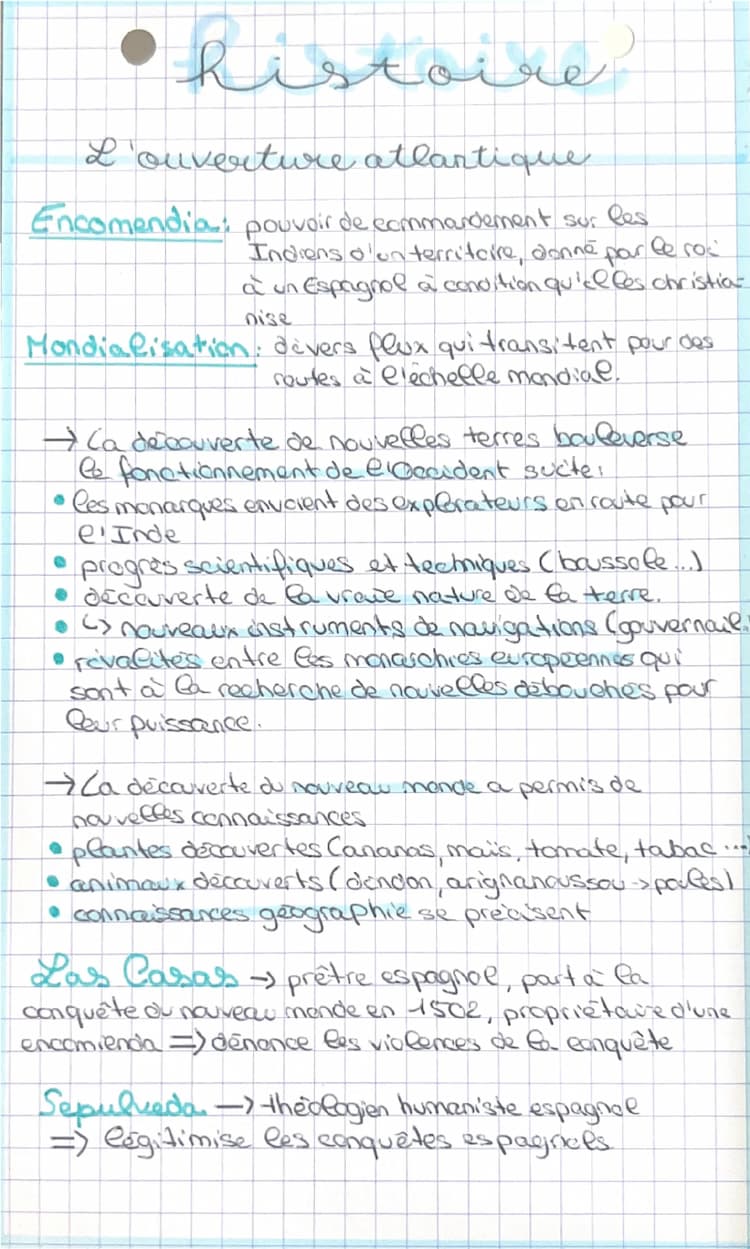 histoire
L'ouverture atlantique
Encomendia : pouvoir de commandement sur les
Indiens d'un territoire, donné par le roi
à un Espagnol à condition qu'il les christia-
nise
Mondialisation : divers flux qui transitent pour des
routes à l'échelle mondial.
→ La découverte de nouvelles terres bouleverse
le fonctionnement de l'Occident suite:
• les monarques envoient des explorateurs en route pour
l'Inde
• progrès scientifiques et techniques (boussole...)
• découverte de la vraie nature de la terre.
• ↳ nouveaux instruments de navigations (gouvernail.
• rivalités entre les monarchies européennes qui
sont à la recherche de nouvelles débouchés pour
leur puissance.
→ La découverte du nouveau monde a permis de
nouvelles connaissances
• plantes découvertes (ananas, maïs, tomate, tabac ...
• animaux découverts (dindon, -> poules)
• connaissances géographie se précisent
Las Casas → prêtre espagnol, part à la
conquête du nouveau monde en 1502, propriétaire d'une
encomienda => dénonce les violences de la conquête
Sepulveda → théologien humaniste espagnol
=> légitimise les conquêtes espagnoles